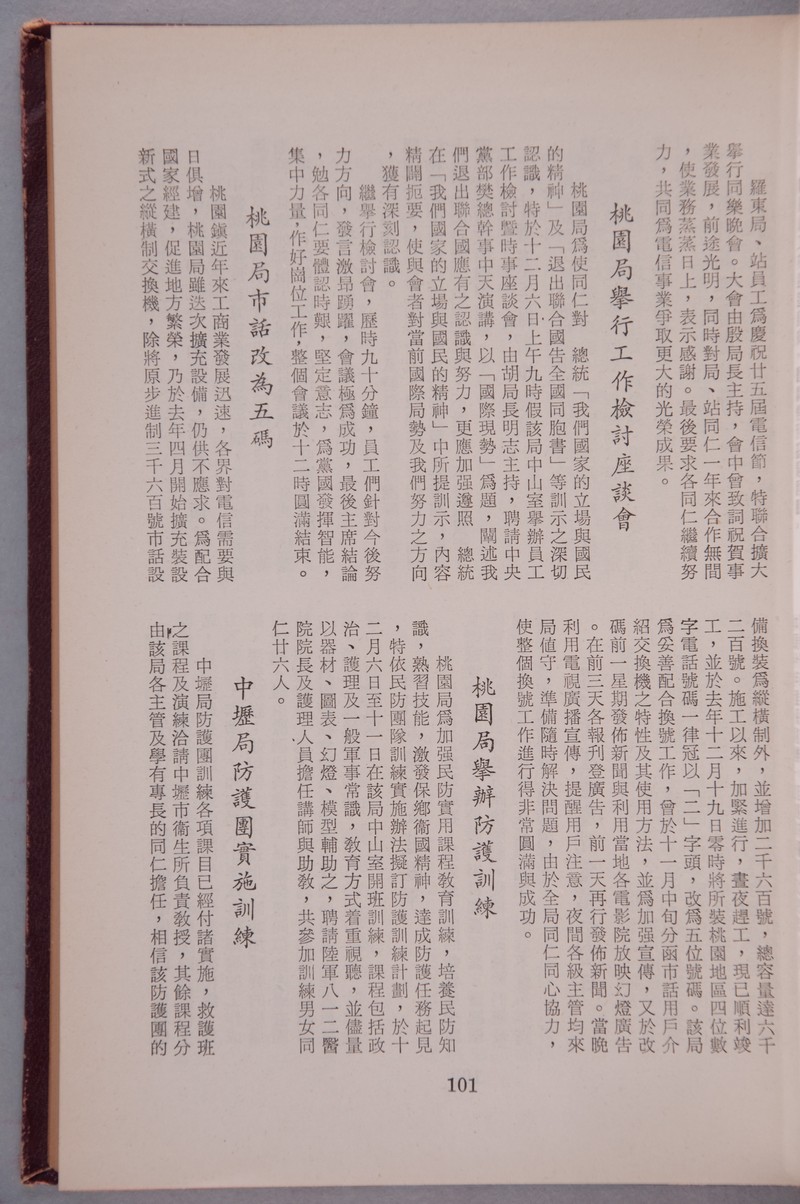 羅東局、站員工爲慶祝廿五屆電信節，特聯合擴大
舉行同樂晚會。大會由殷局長主持，會中曾致詞祝賀事
業發展，前途光明，同時對局、站同仁一年來合作無間
，使業務蒸蒸日上，表示感謝。最後要求各同仁繼續努
力，共同爲電信事業爭取更大的光榮成果。
桃園局舉行工作檢討座談會
桃園局爲使同仁對　總統「我們國家的立場與國民
的精神」及「退出聯合國告全國同胞書」等訓示之深切
認識，特於十二月六日上午九時假該局中山室舉辦員工
工作檢討暨時事座談會，由胡局長明志主持，聘請中央
黨部樊總幹事中天演講，以「國際現勢」爲題，闡述我
們退出聯合國應有之認識與努力，更應加强遵照　總統
在「我們國家的立場與國民的精神」中所提訓示，內容
精闢扼要，使與會者對當前國際局勢及我們努力之方向
，獲有深刻認識。
繼舉行檢討會，歷時九十分鐘，員工們針對今後努
力方向，發言激昂踴躍，會議極爲成功，最後主席結論
，勉各同仁要體認時艱，堅定意志，爲黨國發揮智能，
集中力量，作好崗位工作，整個會議於十二時圓滿結束。
桃園局市話改為五碼
桃園鎭近年來工商業發展迅速，各界對電信需要與
日俱增，桃園局雖迭次擴充設備，仍供不應求。爲配合
國家經建，促進地方繁榮，乃於去年四月開始擴充裝設
新式之縱橫制交換機，除將原步進制三千六百號市話設
備換裝爲縱橫制外，並增加二千六百號，總容量達六千
二百號。施工以來，加緊進行，晝夜趕工，現已順利竣
工，並於去年十二月十九日零時將所裝桃園地區四位數
字電話號碼一律冠以「二」字頭，改爲五位號碼。該局
爲妥善配合換號工作，曾於十一月中旬分函市話用戶介
紹交換機之特性及其使用方法，並爲加强宣傳，又於改
碼前一星期發佈新聞與利用當地各電影院放映幻燈廣告
。在前三天各報刊登廣告，前一天再行發佈新聞。當晚
利用電視廣播宣傳，提醒用戶注意，夜間各級主管均來
局値守，準備隨時解決問題，由於全局同仁同心協力，
使整個換號工作進行得非常圓滿與成功。
桃園局舉辦防護訓練
桃園局爲加强民防實用課程教育訓練，培養民防知
識，熟習技能，激發保鄉衛國精神，達成防護任務起見
，特依民防團隊訓練實施辦法擬訂防護訓練計劃，於十
二月六日至十一日在該局中山室開班訓練，課程包括政
治、護理及一般軍事常識，敎育方式着重視聽，並儘量
以器材、圖表、幻燈、模型輔助之，聘請陸軍八一二醫
院院長及護理人員擔任講師與助敎，共參加訓練男女同
仁廿六人。
中壢局防護團實施訓練
中壢局防護團訓練各項課目已經付諸實施，救護班
之課程及演練洽請中壢市衞生所負責敎授，其餘課程分
由該局各主管及學有專長的同仁擔任，相信該防護團的
101